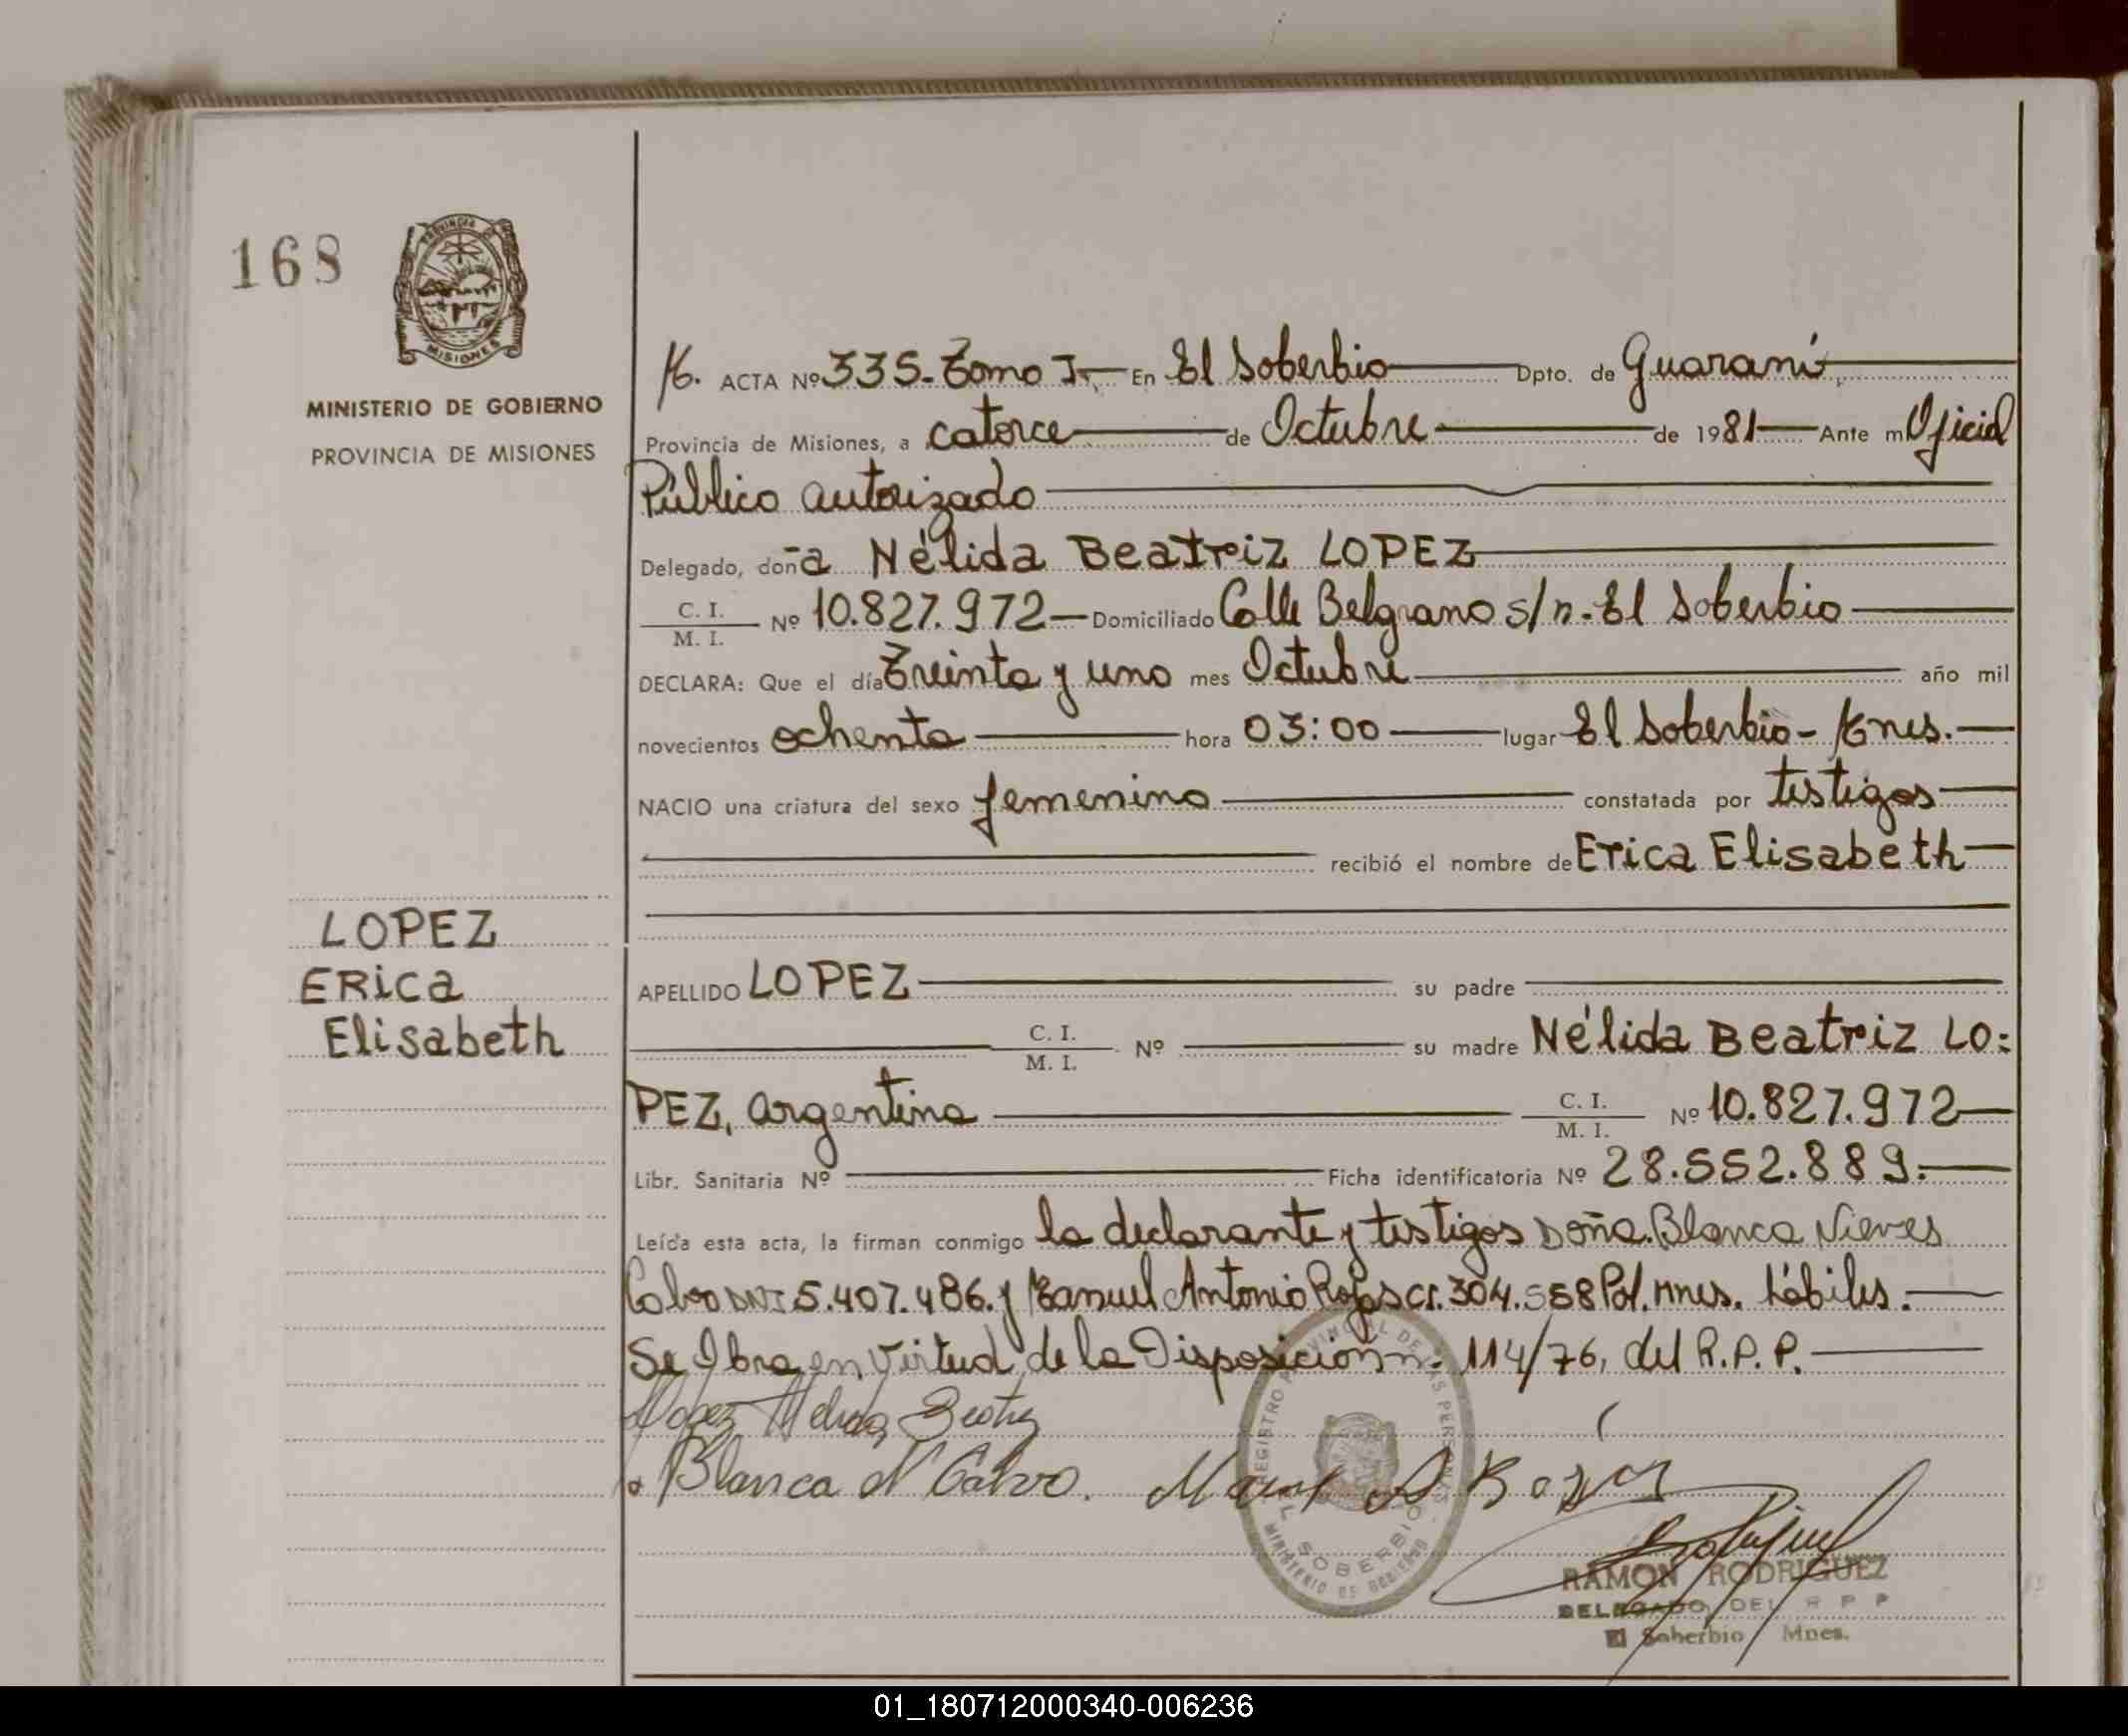 168
PROVINCIA DE
MISIONES
MINISTERIO DE GOBIERNO
PROVINCIA DE MISIONES
ACTA Nº 335. Tomo I. En El Soberbio Dpto. de Guaraní
Provincia de Misiones, a catorce de Octubre de 1981 Ante mí Oficial
Público autorizado
Delegado, doña Nélida Beatriz LOPEZ
C. I.
M. I. Nº 10.827.972 Domiciliado Calle Belgrano s/n. El Soberbio
DECLARA: Que el día Treinta y uno mes Octubre año mil
novecientos ochenta hora 03:00 lugar El Soberbio - Mnes.
NACIO una criatura del sexo femenino constatada por testigos
recibió el nombre de Erica Elisabeth
LOPEZ
ERica
Elisabeth
APELLIDO LOPEZ su padre
C. I.
M. I. Nº su madre Nélida Beatriz LO=
PEZ, argentina C. I.
M. I. Nº 10.827.972
Libr. Sanitaria Nº Ficha identificatoria Nº 28.552.889.
Leída esta acta, la firman conmigo la declarante y testigos Doña Blanca Nieves
Calvo DNI 5.407.486. y Manuel Antonio Rojas CI. 304.558 Pol. Mnes. hábiles.
Se Obra en virtud de la Disposición n. 114/76, del R.P.P.
Lopez Nelida Beatriz
Blanca N Calvo. Manuel A Rojas
REGISTRO PROVINCIAL DE LAS PERSONAS
EL SOBERBIO
MINISTERIO DE GOBIERNO
RAMON RODRIGUEZ
DELEGADO DEL R P P
El Soberbio Mnes.
01_180712000340-006236